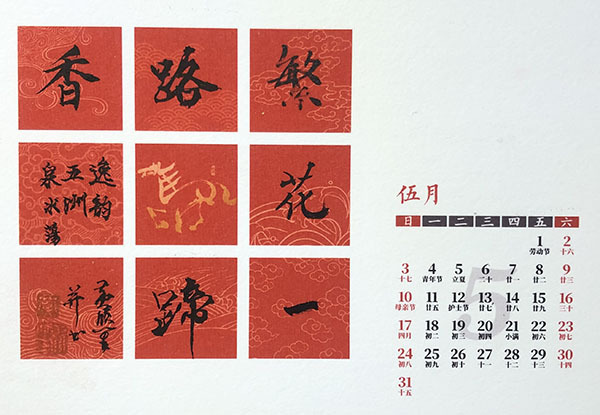 繁
花
一
路
蹄
香
逸韵
五洲
泉水荡
并书
伍月
5
日 一 二 三 四 五 六
1 2
劳动节 十六
3 4 5 6 7 8 9
十七 青年节 立夏 二十 廿一 廿二 廿三
10 11 12 13 14 15 16
母亲节 廿五 护士节 廿七 廿八 廿九 三十
17 18 19 20 21 22 23
四月 初二 初三 初四 小满 初六 初七
24 25 26 27 28 29 30
初八 初九 初十 十一 十二 十三 十四
31
十五